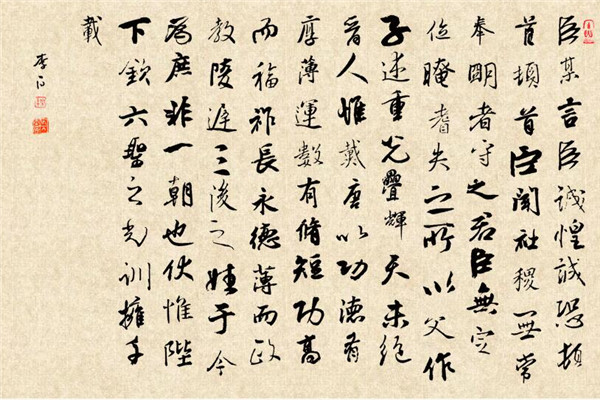 臣某言臣誠惶誠恐頓
首頓首臣聞社稷無常
奉明者守之君臣無定
位晻者失之所以父作
子述重光疊輝天未絕
晉人惟戴唐以功德有
厚薄運數有脩短功高
而福祚長永德薄而政
教陵遲三後之姓于今
為庶非一朝也伏惟陛
下欽六聖之光訓擁千
載